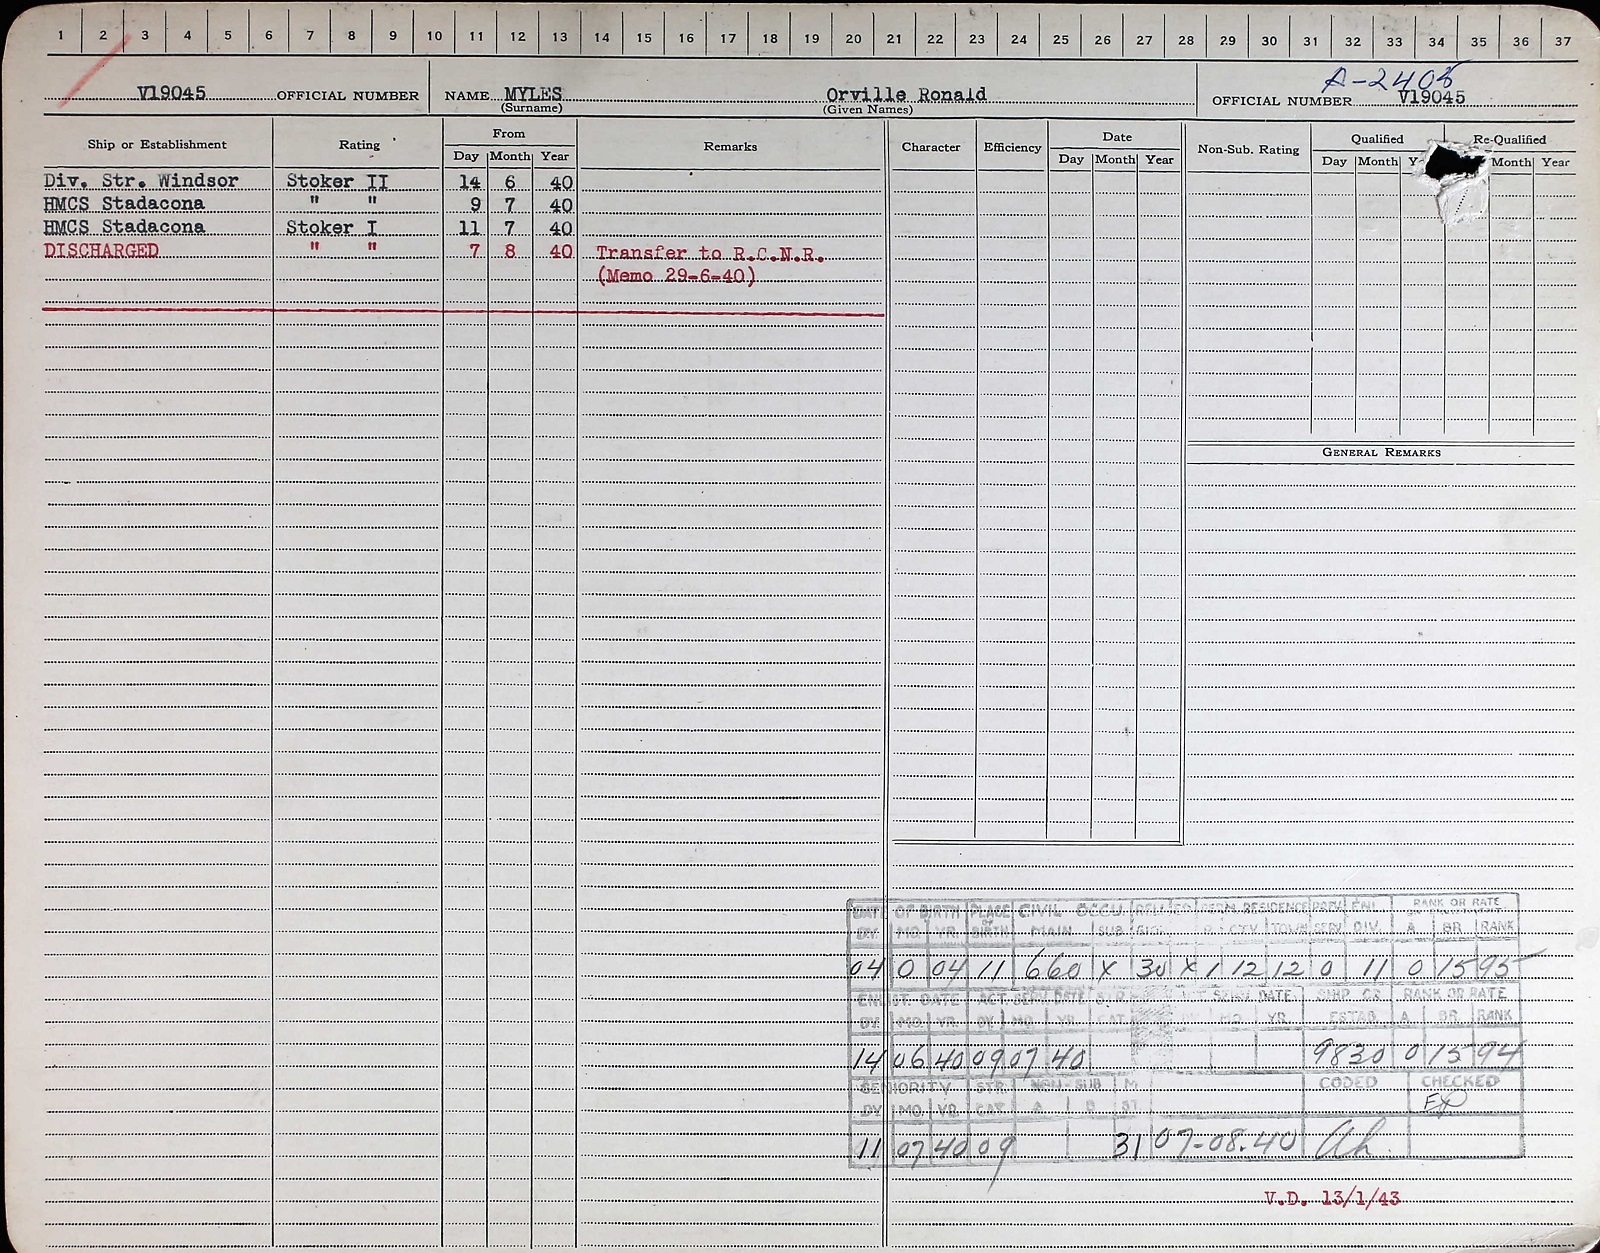 1 2 3 4 5 6 7 8 9 10 11 12 13 14 15 16 17 18 19 20 21 22 23 24 25 26 27 28 29 30 31 32 33 34 35 36 37
A-2405
V19045 OFFICIAL NUMBER NAME MYLES Orville Ronald OFFICIAL NUMBER V19045
(Surname) (Given Names)
Ship or Establishment Rating From Remarks Character Efficiency Date Non-Sub. Rating Qualified Re-Qualified
Day Month Year Day Month Year Day Month Month Year
Div. Str. Windsor Stoker II 14 6 40
HMCS Stadacona " " 9 7 40
HMCS Stadacona Stoker I 11 7 40
DISCHARGED " " 7 8 40 Transfer to R.C.N.R.
(Memo 29-6-40)
GENERAL REMARKS
DATE OF BIRTH PLACE OF BIRTH CIVIL OCCU PERM. RESIDENCE RANK OR RATE
DY. MO. YR. MAIN SUB CTY TOWN SERV DIV. A BR. RANK
04 0 04 11 660 X 30 X 1 12 12 0 11 0 15 95
ENLIST. DATE ACT. SERV. DATE STR DATE SHIP OR RANK OR RATE
DY. MO. YR. DY. MO. YR. CAT MO. YR. ESTAB. A. BR. RANK
14 06 40 09 07 40 9830 0 15 94
SENIORITY STR. NON-SUB CODED CHECKED
DY. MO. YR. CAT.
11 07 40 09 31 07-08-40 Ah.
V.D. 13/1/43